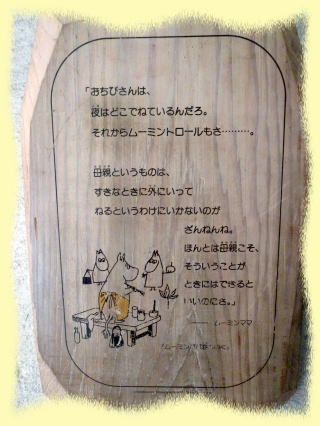 「おちびさんは、
夜はどこでねているんだろ。
それからムーミントロールもさ………。
母親というものは、
すきなときに外にいって
ねるというわけにいかないのが
ざんねんね。
ほんとは母親こそ、
そういうことが
ときにはできると
いいのにさ。」
―― ムーミンママ